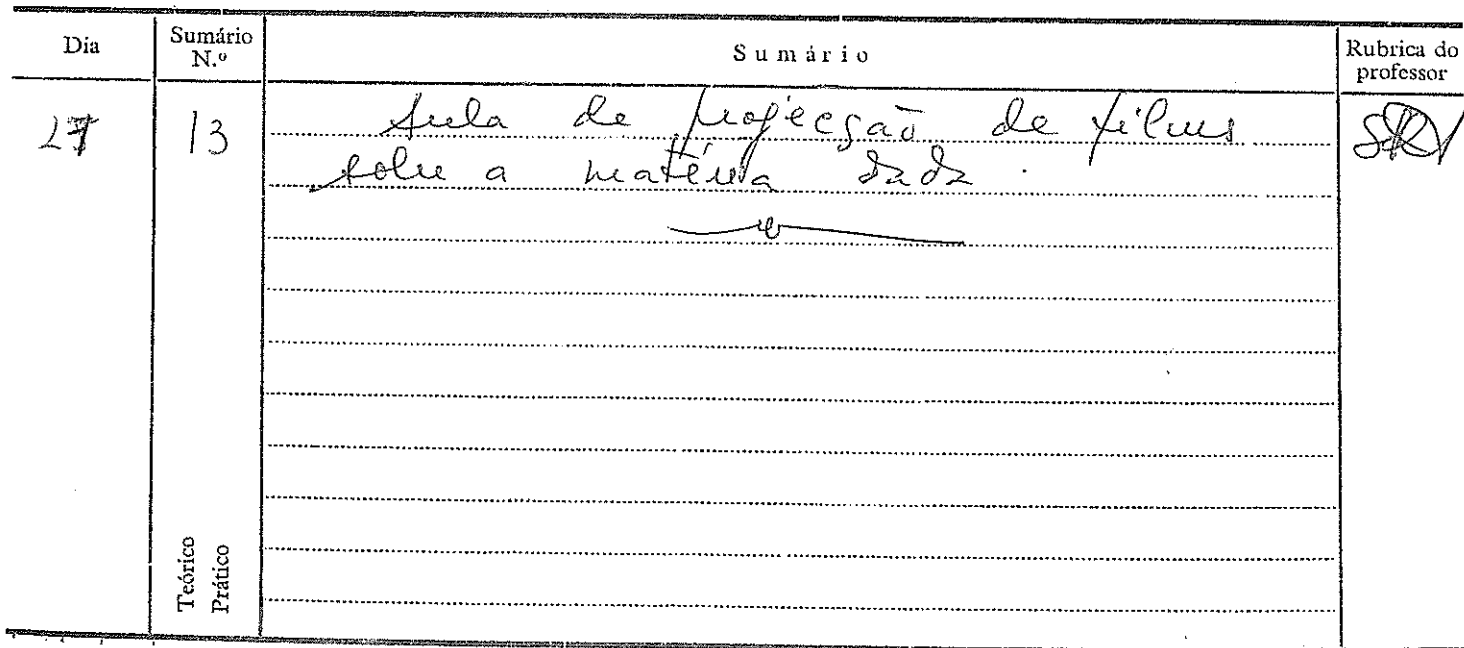 Dia
Sumário N.º
Sumário
Rubrica do professor
27
13
Aula de projecção de filmes
sobre a matéria dada.
Teórico
Prático